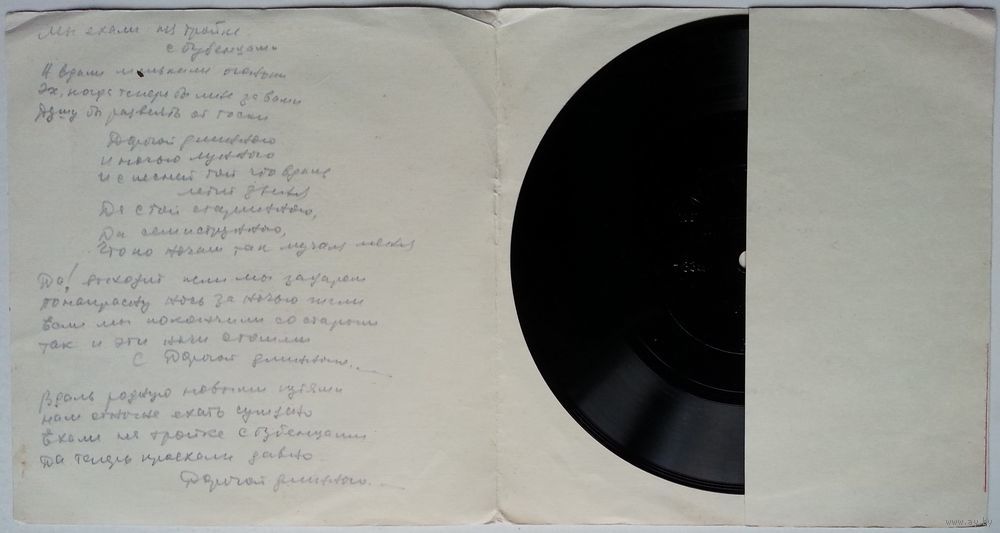 Мы ехали на тройке
с бубенцами
А вдали мелькали огоньки
Эх, когда теперь бы мне за вами
Душу бы развеять от тоски
Дорогой длинною
И ночью лунною
И с песней той что вдаль
летит звеня
Да с той старинною,
Да семиструнною,
Что по ночам так мучала меня
Да! выходит пели мы задаром
понапрасну ночь за ночью жгли
Если мы покончили со старым
так и эти ночи отошли
С Дорогой длинною...
Вдаль родную новыми путями
нам отныне ехать суждено
Ехали на тройке с бубенцами
Да теперь проехали давно
Дорогой длинною...
www.ay.by